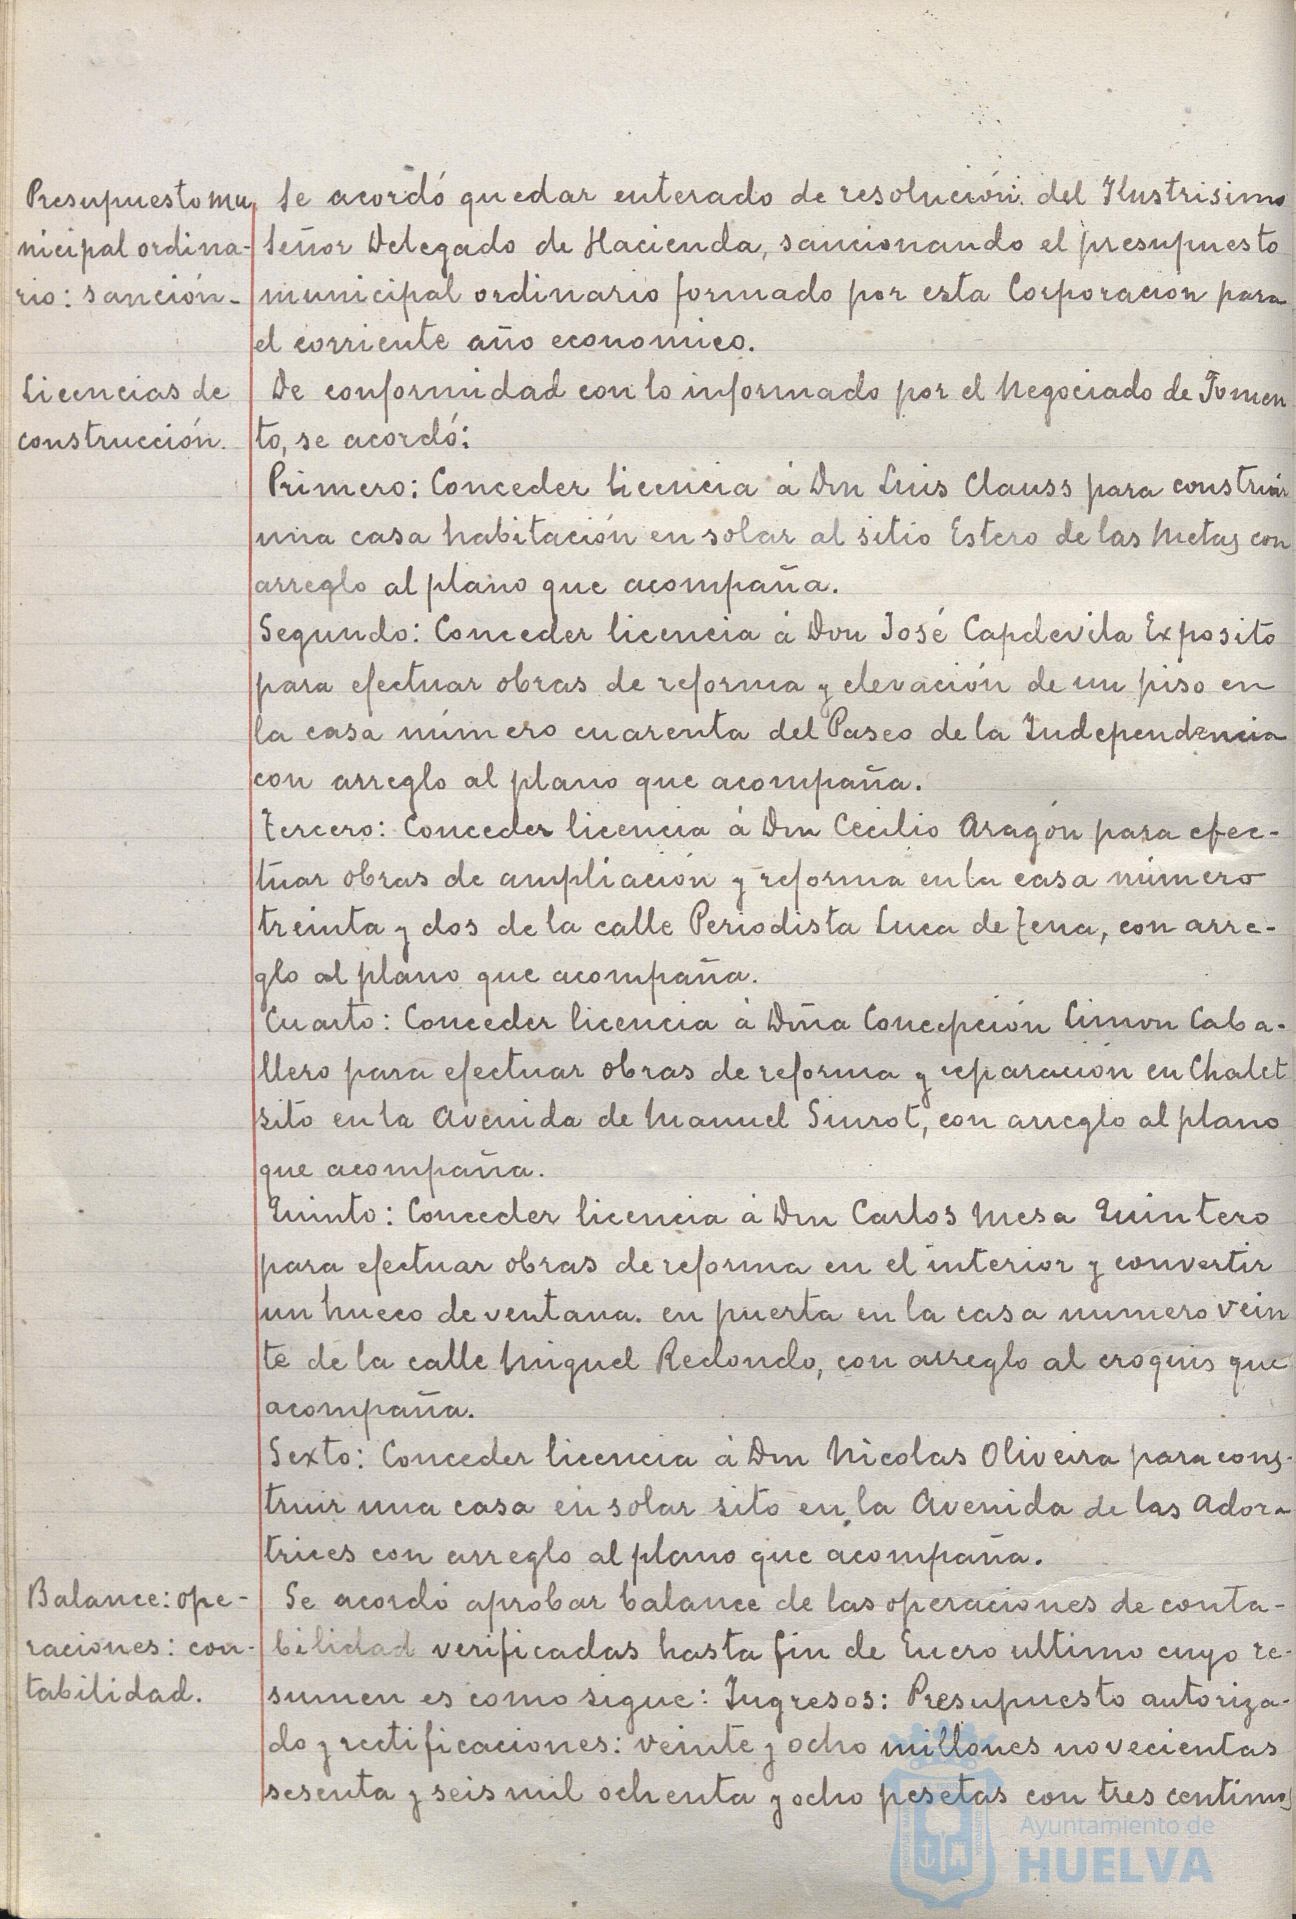 Presupuesto mu
nicipal ordina-
rio: sanción-
Se acordó quedar enterado de resolución del Ilustrisimo
Señor Delegado de Hacienda, sancionando el presupuesto
municipal ordinario formado por esta Corporacion para
el corriente año economico.
Licencias de
construcción.
De conformidad con lo informado por el Negociado de Fomen
to, se acordó:
Primero: Conceder licencia á Don Luis Clauss para construir
una casa habitación en solar al sitio Estero de las Metas con
arreglo al plano que acompaña.
Segundo: Conceder licencia á Don José Capdevila Exposito
para efectuar obras de reforma y elevación de un piso en
la casa número cuarenta del Paseo de la Independencia
con arreglo al plano que acompaña.
Tercero: Conceder licencia á Don Cecilio Aragón para efec-
tuar obras de ampliación y reforma en la casa número
treinta y dos de la calle Periodista Luca de Tena, con arre-
glo al plano que acompaña.
Cuarto: Conceder licencia á Dña Concepción Limon Caba-
llero para efectuar obras de reforma y reparación en Chalet
sito en la Avenida de Manuel Siurot, con arreglo al plano
que acompaña.
Quinto: Conceder licencia á Don Carlos Mesa Quintero
para efectuar obras de reforma en el interior y convertir
un hueco de ventana. en puerta en la casa numero vein
te de la calle Miguel Redondo, con arreglo al croquis que
acompaña.
Sexto: Conceder licencia á Don Nicolas Oliveira para cons-
truir una casa en solar sito en la Avenida de las Adora
trices con arreglo al plano que acompaña.
Balance: ope-
raciones: con-
tabilidad.
Se acordó aprobar balance de las operaciones de conta-
bilidad verificadas hasta fin de Enero ultimo cuyo re-
sumen es como sigue: Ingresos: Presupuesto autoriza-
do y rectificaciones: veinte y ocho millones novecientas
sesenta y seis mil ochenta y ocho pesetas con tres centimos
Ayuntamiento de
HUELVA